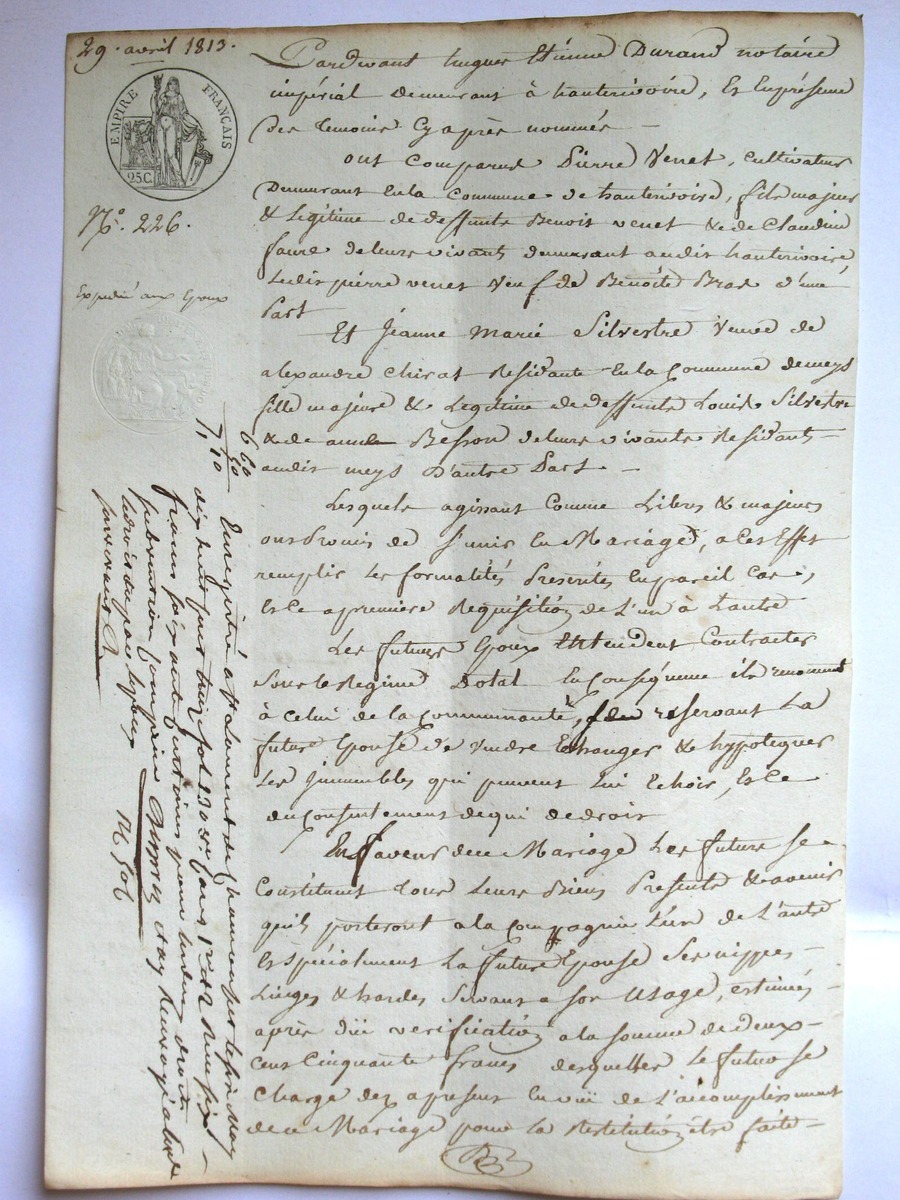 29. avril 1813.
EMPIRE FRANÇAIS
25 C.
N.º 226.
Expedié aux Epoux
Pardevant hugues Etienne Durand notaire
impérial demeurant à hauterivoire, Et Enprésence
Des temoins Cyaprès nommés —
ont Comparus Pierre Venet, cultivateur
Demeurant Enla Commune de hauterivoire, fils majeur
& Legitime de deffunts Benoit venet & de Claudine
faure deleurs vivants demeurant audit hauterivoire,
Ledit pierre venet Veuf de Benoite Bras d'une
Part
Et Jéanne Marie Silvestre Veuve de
alexandre Chirat Residante Enla Commune demeys
fille majeure & Legitime dedeffunts Louis Silvestre
& de Besson deleurs vivants Residants —
audit meys D'autre Part. —
Lesquels agissant Comme Libres & majeurs
ont Promis de S'unir En Mariage, a Cet Effet
remplir Les formalités Prescrites Enpareil Cas,
Et Ce apremière Requisition de L'un à L'autre
Les futurs Epoux Entendent Contracter
Sous le Regime Dotal Enconséquence ils renoncent
à Celui de la Communauté, reservant La
future Epouse De vendre Echanger & hypotequer
Les Immeubles qui peuvent Lui Echoir, Et Ce
du Consentement dequi dedroit
Enfaveur dece Mariage Les futurs Se
Constituent tous Leurs Biens Presents & avenir
qu'ils porteront ala Compagnie L'un de L'autre
Et Spécialement La future Epouse Ses nippes —
Linges & hardes Servant a Son Usage, estimées
après Düe vérification ala Somme dedeux —
Cent Cinquante francs desquelles Le futur Se
Charge dez apresent En vüe de L'accomplissement
dece Mariage pour La restitution être faite —
6 60
7, 10
Enregistré a St Laurent de Chamousset le six May
dix huit cent treize fol. 130
francs soixante centimes pour droit
subvention comprise